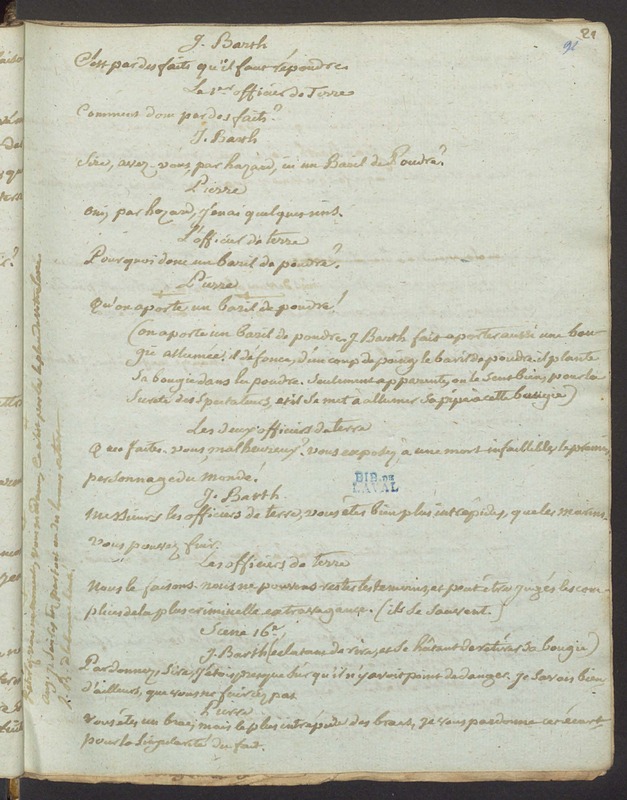 21
91
J. Barth
C'est par des faits qu'il faut répondre.
Le 1er officier de Terre
Comment donc par des faits?
J. Barth
Sire, avez-vous, par hazard, ici un Baril de Poudre?
Pierre
Oui, par hazard, j'en ai quelques uns.
L'officier de terre
Pourquoi donc un baril de poudre?
Pierre
Qu'on aporte un baril de poudre!
(on aporte un baril de poudre. J. Barth fait aporter aussi une bou-
gie allumée: il défonce, d'un coup de poing le baril de poudre: il plante
sa bougie dans la poudre. Seulement apparente, on le sent bien, pour la
sureté des Spectateurs, et il se met à allumer sa pipe à cette bougie)
Les deux officiers de terre
Que faites-vous malheureux? vous exposez à une mort infaillible, le premier
personnage du monde!
BIB. DE
LAVAL
J. Barth
Messieurs les officiers de terre, vous êtes bien plus intrépides, que les marins.
Vous pouvez fuir.
Les officiers de terre
Nous le faisons. nous ne pouvons rester les temoins, et peut être jugés les com-
plices de la plus criminelle extravagance. (ils se sauvent.)
Scene 16e
J. Barth (éclatant de rire, et se hâtant de retirer sa bougie)
Pardonnez, Sire, j'étois presque sur qu'il n'y avoit point de danger. Je savois bien
d'ailleurs, que vous ne fuiriez pas
Pierre
Vous êtes un brave, mais le plus intrépide des braves, je vous pardonne cet écart
pour la singularité du fait.